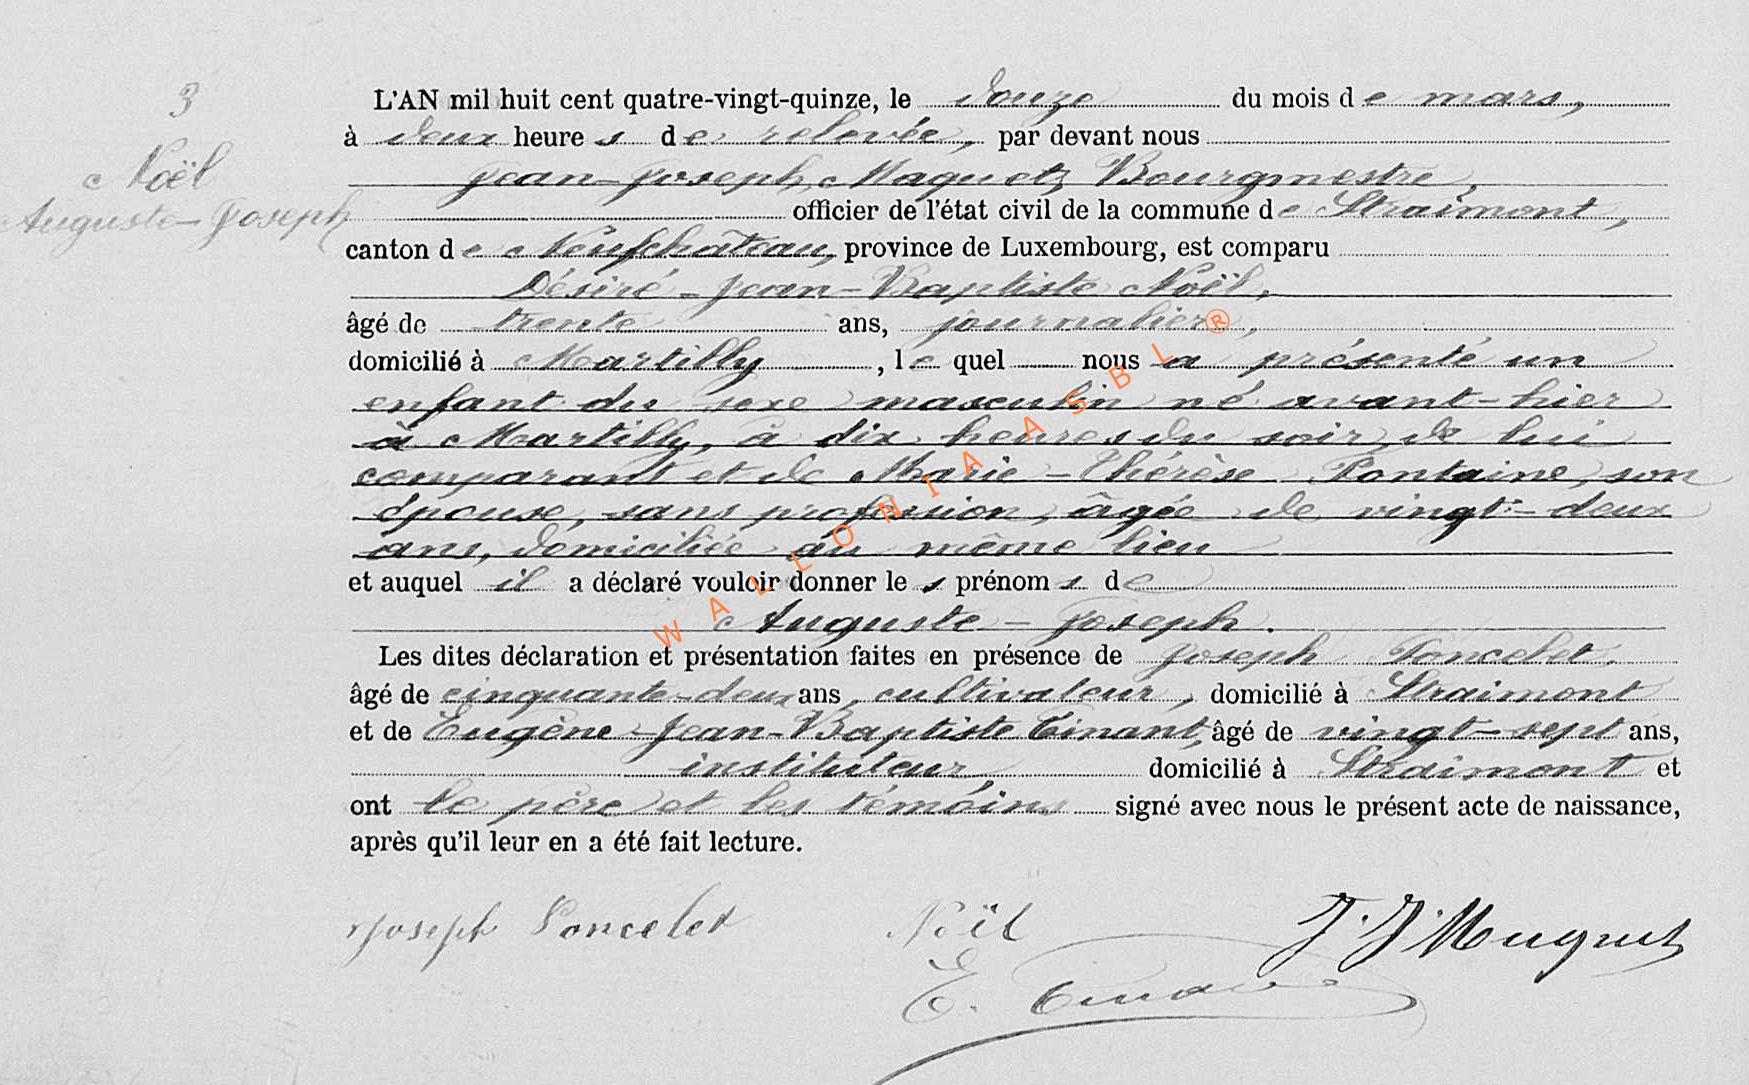 3
Noël
Auguste-Joseph
L'AN mil huit cent quatre-vingt-quinze, le douze du mois de mars,
à deux heures de relevée, par devant nous
Jean-Joseph Maquet, Bourgmestre,
officier de l'état civil de la commune de Straimont,
canton de Neufchâteau, province de Luxembourg, est comparu
Désiré-Jean-Baptiste Noël,
âgé de trente ans, journalier,
domicilié à Martilly, lequel nous a présenté un
enfant du sexe masculin né avant-hier
à Martilly, à dix heures du soir, de lui
comparant et de Marie-Thérèse Pontaine, son
épouse, sans profession, âgée de vingt-deux
ans, domiciliée au même lieu
et auquel il a déclaré vouloir donner les prénoms de
Auguste-Joseph.
Les dites déclaration et présentation faites en présence de Joseph Poncelet,
âgé de cinquante-deux ans, cultivateur, domicilié à Straimont
et de Eugène-Jean-Baptiste Tinant, âgé de vingt-sept ans,
instituteur, domicilié à Straimont et
ont le père et les témoins signé avec nous le présent acte de naissance,
après qu'il leur en a été fait lecture.
Joseph Poncelet Noël J. J. Maquet
E. Tinant
WALLONIA ASBL ®